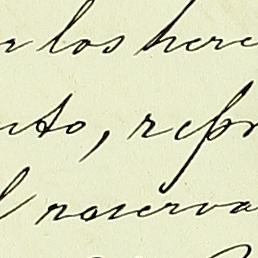 r los here
nto, repr
l reserva